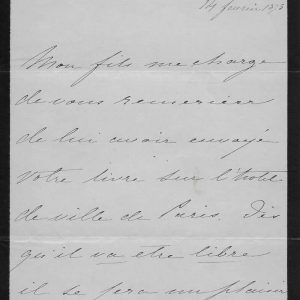 14 février
Mon fils me charge
de vous remercier
de lui avoir envoyé
votre livre sur l'hotel
de ville de Paris. Dès
qu'il va etre libre
il se fera un plaisir